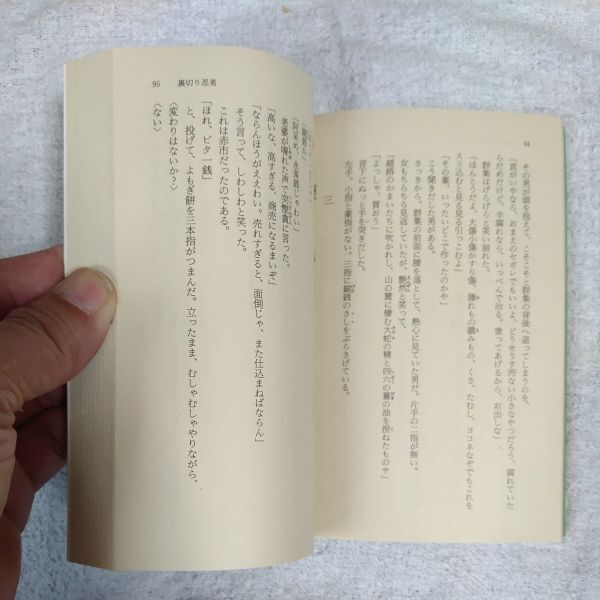 94
その男が頭を抱えて、こそこそと群集の背後へ退ってしまうのを、
「貰がいやなら、おまえのセガレでもいいよ、どうせうす汚ない小さなやつだろう、腐れていた
らだめだけど、半腐れなら、いっぺんで治る。塗ってあげるから、お出しな」
群集はげらげらと笑い崩れた。
「ほんとうだよ、大傷小傷かすり傷、腫れもの膿みもの、くさ、たむし、ヨコネなぞでもこれを
スリ込むと見る見る引っこむよ」
「その薬、いったいどこで作ったのかや」
こう聞きだした男がある。
さっきから、群集の前面に腰を落として、熱心に見ていた男だ。片手の二指が無い。
女もちらちら見返していたが、艶然と笑って、
「越路のかまいたちに吹かれし、山の麓に棲む大蛇の精と四六の蟇の油を捏ねたものサ」
「よっしゃ、買おう」
言下にぬっと手を突きだした。
左手。小指と薬指がない。三指に銀銭のさしをぶらさげている。
三
95 裏切り忍者
「阿呆め、永楽銭じゃわい」
老婆が嗄れた声で突慳貪に言った。
「高いな、高すぎる、商売になるまいぞ」
「ならんほうがええわい。売れすぎると、面倒じゃ、また仕込まねばならん」
そう言って、しわしわと笑った。
これは赤市だったのである。
「ほれ、ビタ一銭」
と、投げて、よもぎ餅を三本指がつまんだ。立ったまま、むしゃむしゃやりながら、
〈変わりはないか?〉
〈ない〉